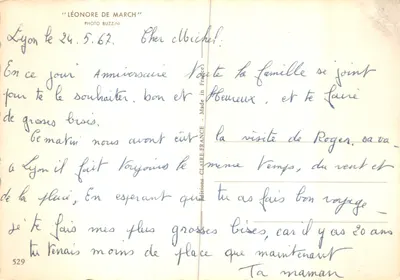 "LÉONORE DE MARCH"
PHOTO BUZZINI
Lyon le 24.5.67. Cher Michel.
En ce jour Anniversaire Toute la famille se joint
pour te le souhaiter, bon et Heureux, et te faire
de grosses bises.
Ce matin nous avont eût la visite de Roger, sa va.
a Lyon il fait toujours le meme temps, du vent et
de la pluie, En esperant que tu as fais bon voyage
je te fais mes plus grosses bises, car il y as 20 ans
tu tenais moins de place que maintenant
Ta maman
529
Éditions CLAIRE-FRANCE - Made in France